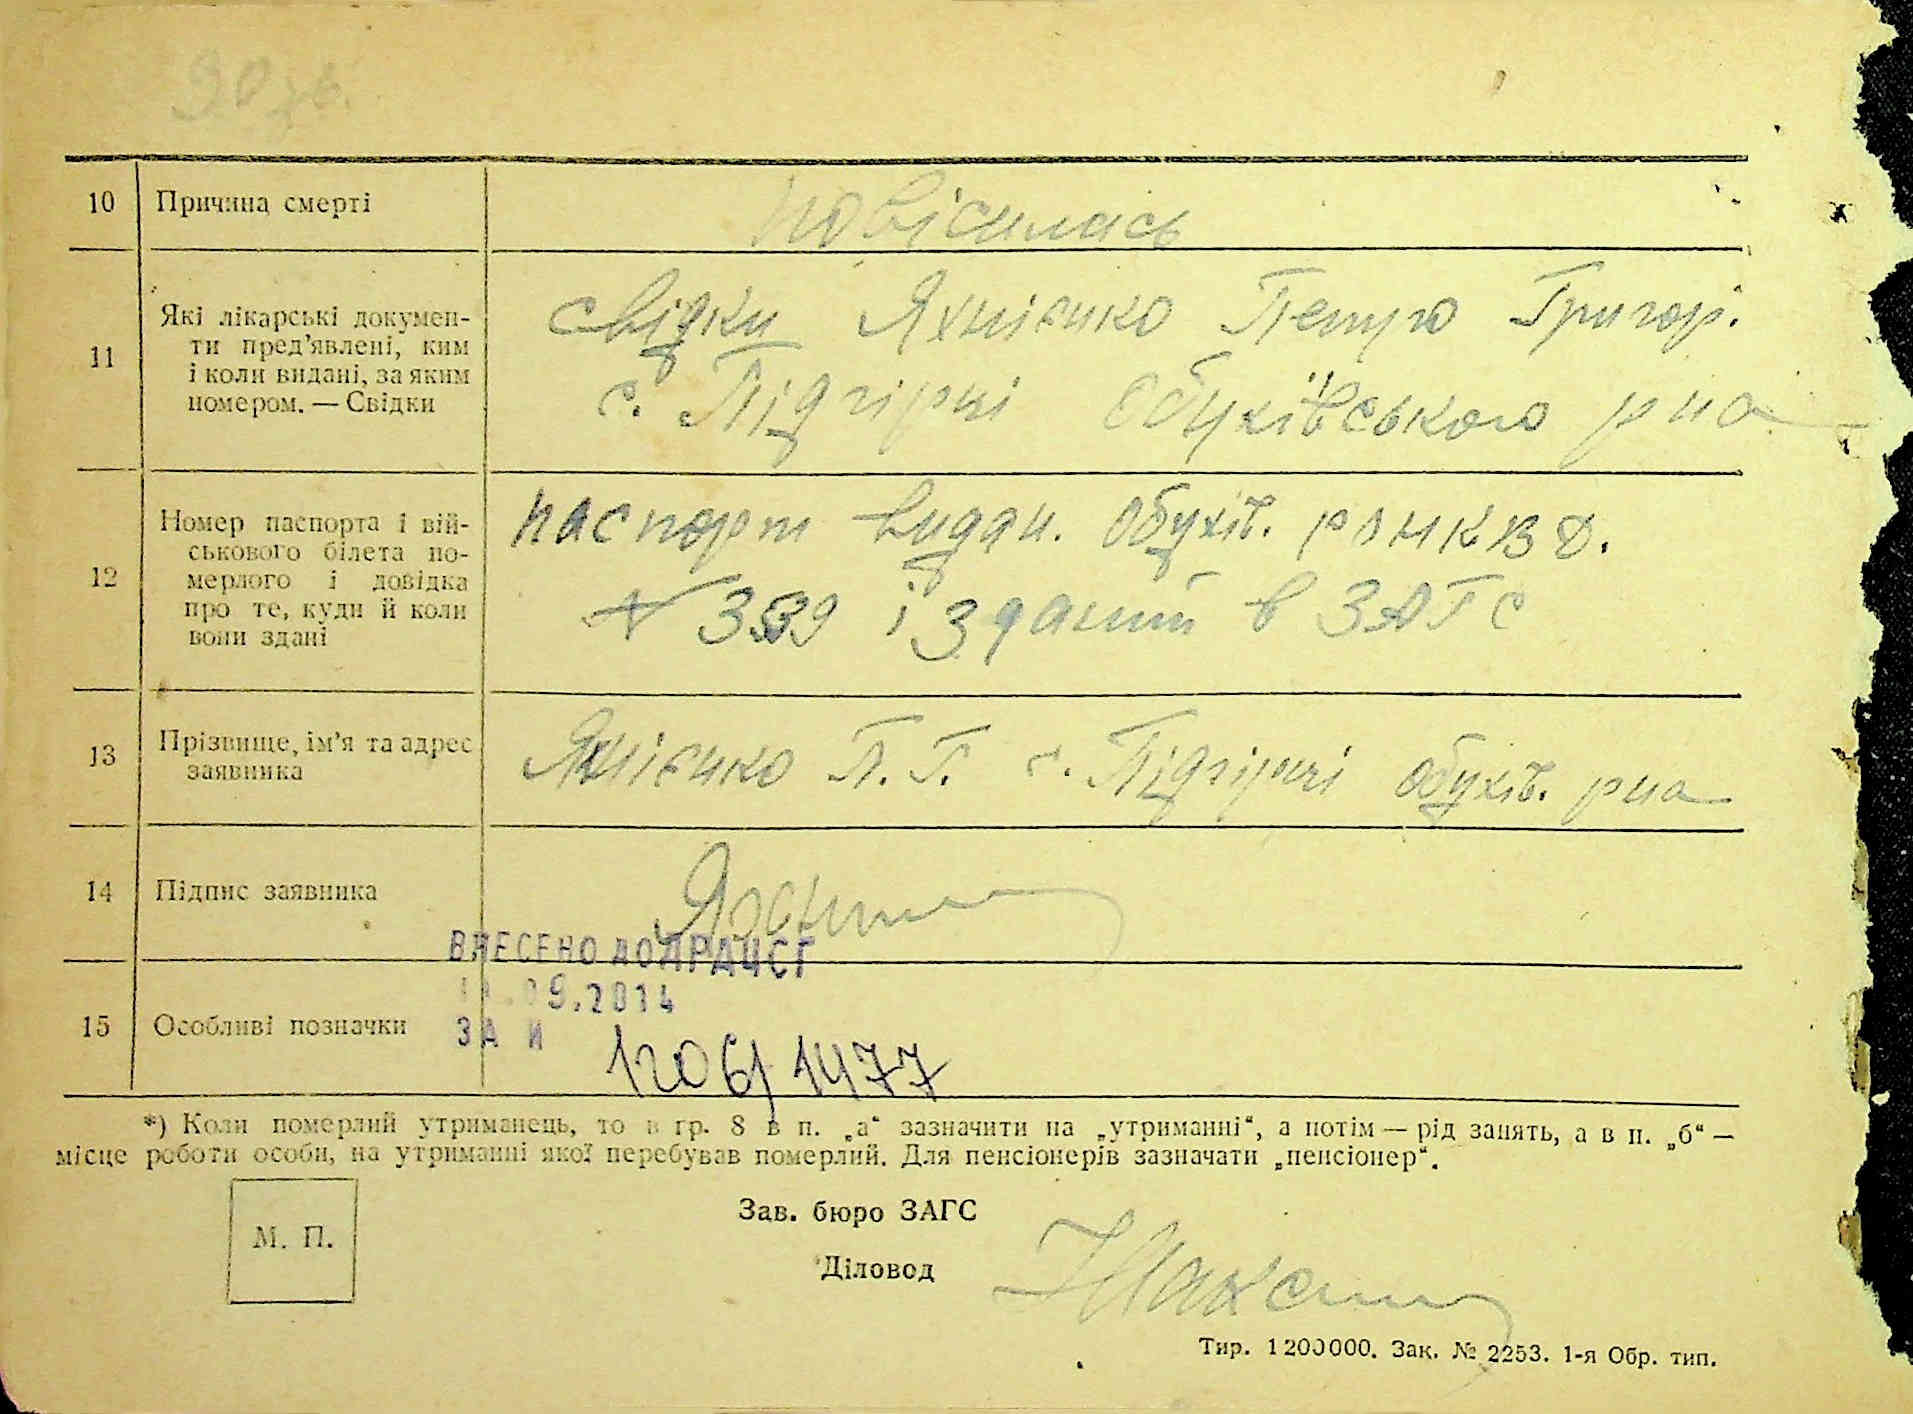 10 Причина смерті повісилась
11 Які лікарські докумен-
ти пред'явлені, ким
і коли видані, за яким
номером. — Свідки
свідки Яхнієнко Петро Григор.
с. Підгірці Обухівського р-на
12 Номер паспорта і вій-
ськового білета по-
мерлого і довідка
про те, куди й коли
вони здані
паспорт видан. Обухів. РОНКВД.
№ 339 і зданий в ЗАГС
13 Прізвище, ім'я та адрес
заявника
Яхнієнко П. Г. с. Підгірці Обухів. р-на
14 Підпис заявника
ВНЕСЕНО ДО ДРАЦСГ
09.2014
15 Особливі позначки
ЗА И 1206/1477
*) Коли померлий утриманець, то в гр. 8 в п. „а“ зазначити на „утриманні“, а потім — рід занять, а в п. „б“ —
місце роботи особи, на утриманні якої перебував померлий. Для пенсіонерів зазначати „пенсіонер“.
М. П.
Зав. бюро ЗАГС
Діловод
Тир. 1200000. Зак. № 2253. 1-я Обр. тип.